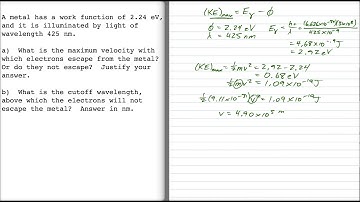 A metal has a work function of 2.24 eV,
and it is illuminated by light of
wavelength 425 nm.
a) What is the maximum velocity with
which electrons escape from the metal?
Or do they not escape? Justify your
answer.
b) What is the cutoff wavelength,
above which the electrons will not
escape the metal? Answer in nm.
(KE)max = Eγ - ϕ
ϕ = 2.24 eV
λ = 425 nm
Eγ = hc/λ = (6.626×10⁻³⁴)(3×10⁸)/425×10⁻⁹
= 4.68×10⁻¹⁹ J
= 2.92 eV
(KE)max = ½mv² = 2.92 - 2.24
= 0.68 eV
½mv² = 1.09×10⁻¹⁹ J
½(9.11×10⁻³¹)v² = 1.09×10⁻¹⁹
v = 4.90×10⁵ m